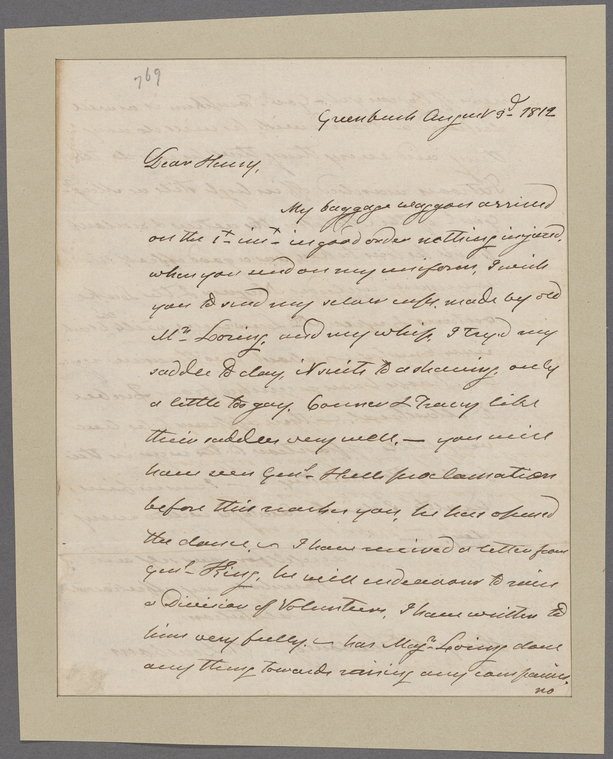 769
Greenbush August 3d 1812
Dear Henry,
My baggage waggon arrived
on the 1st inst in good order nothing injured,
when you send on my uniform, I wish
you to send my made by old
Mr Loring, and my whip, I try'd my
saddle to day, it suits to a shaving, only
a little too gay. Connor & Tracy like
their saddles very well, — you will
have seen Genl Hulls proclamation
before this reaches you, he has opened
the dance, ~ I have received a letter from
Genl King, he will endeavour to raise
a Division of Volunteers, I have written to
him very fully. ~ has Majr Loring done
any thing towards raising any companies,
no